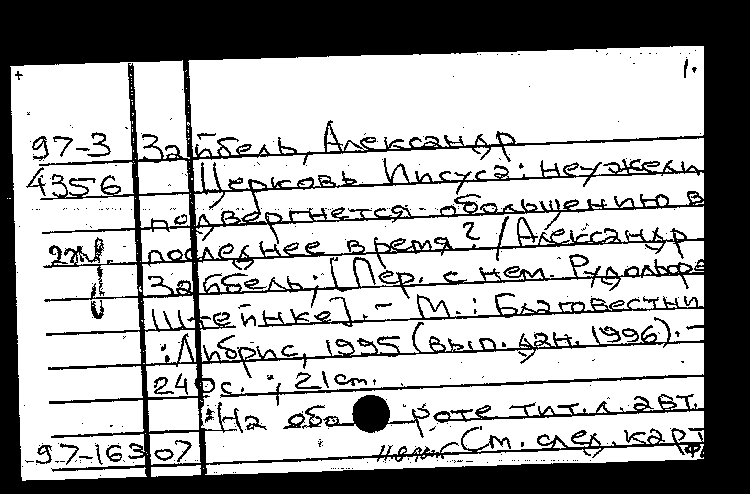 1.
97-3 Зайбель, Александр
4356 Церковь Иисуса: неужели
подвергнется обольщению в
последнее время? / Александр
Зайбель; [Пер. с нем. Рудольфа
Штейнке]. - М.: Благовестни
: Либрис, 1995 (вып. дан. 1996). -
240с. ; 21см.
*На обо роте тит. л. авт.
97-16307 См. след. карт